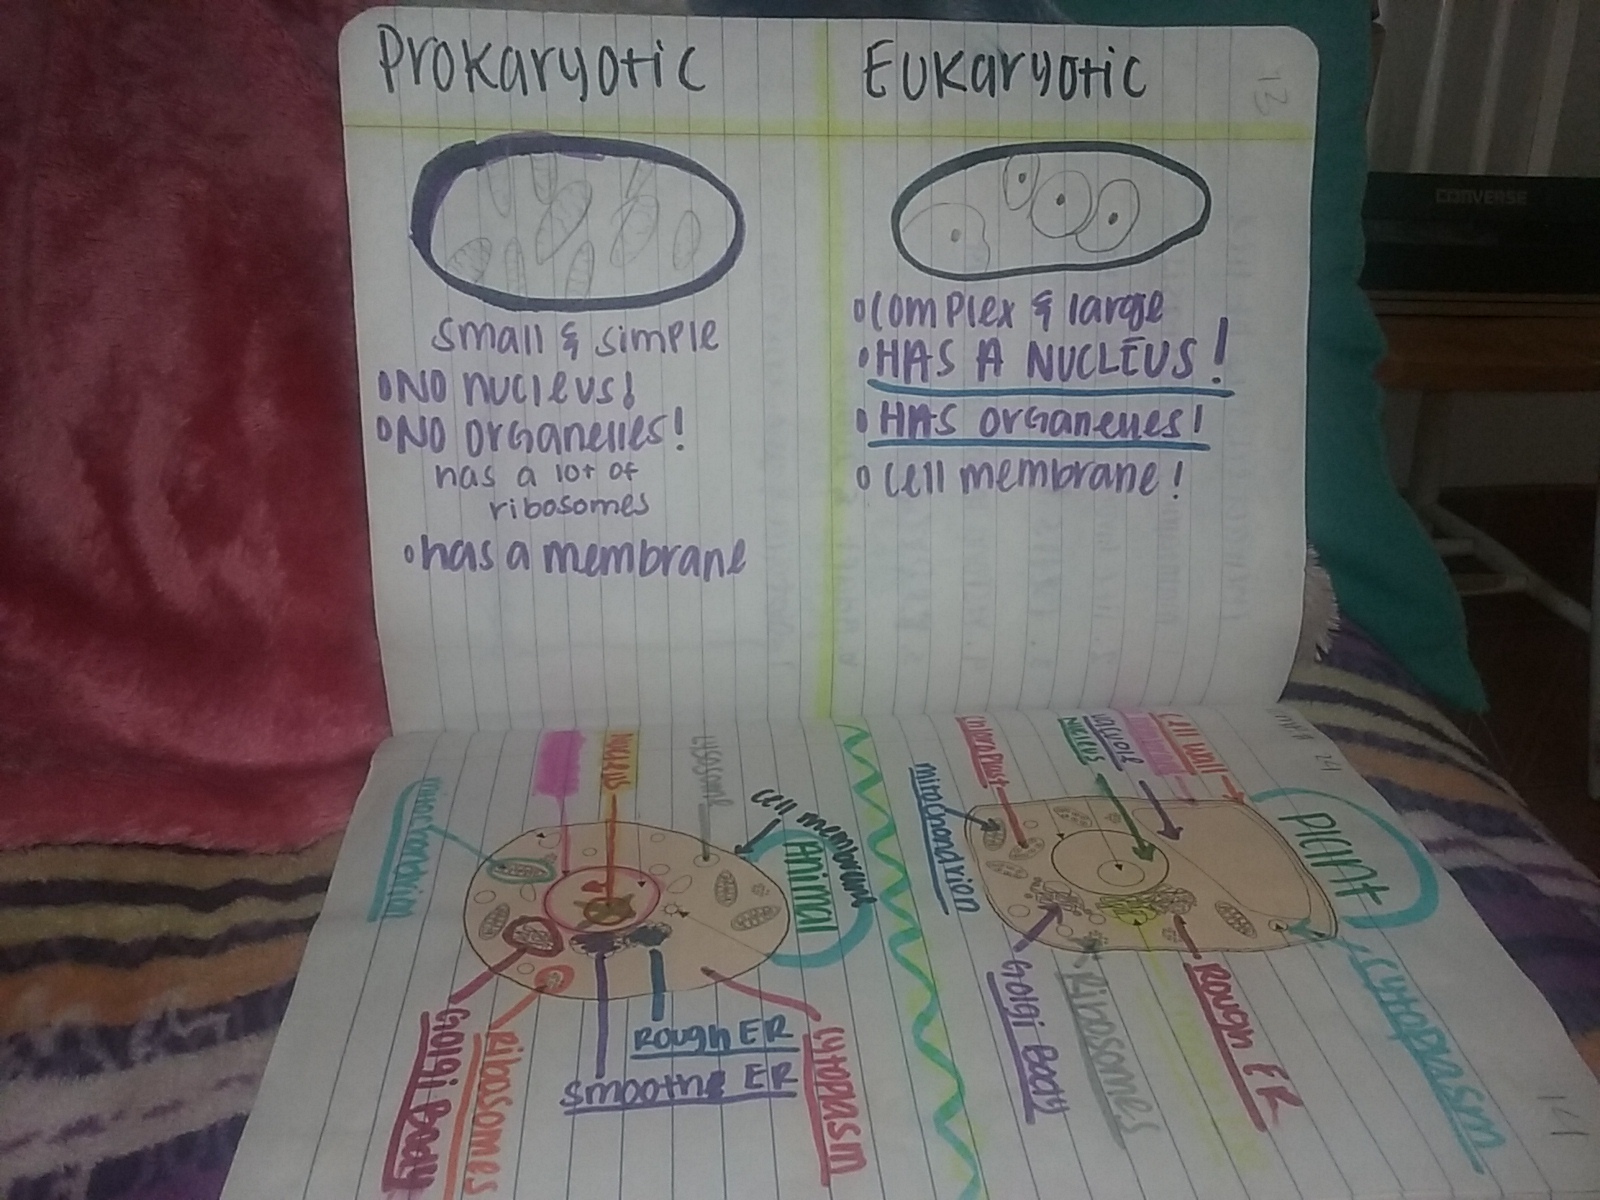 Prokaryotic
Eukaryotic
13
small & simple
NO nucleus!
NO organelles!
has a lot of
ribosomes
has a membrane
complex & large
HAS A NUCLEUS!
HAS organelles!
cell membrane!
CONVERSE
Animal
cell membrane
lysosome
Nucleus
mitochondrion
Golgi Body
Ribosomes
smoothe ER
Rough ER
cytoplasm
Plant
cell wall
vacuole
Nucleus
chloroplast
mitochondrion
Golgi Body
Ribosomes
Rough ER
cytoplasm
14